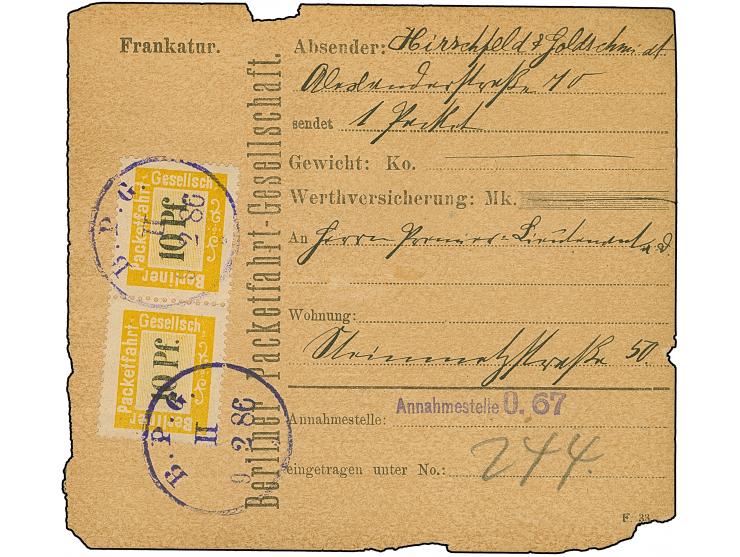 Frankatur.
Absender: Hirschfeld & Goldschmidt
Alexanderstraße 70
sendet 1 Packet
Gewicht: Ko.
Werthversicherung: Mk.
An Herrn Premier-Lieutenant a. d.
Wohnung:
Steinmetzstraße 50.
Annahmestelle: Annahmestelle O. 67
eingetragen unter No.: 244.
F. 33.
Berliner Packetfahrt-Gesellschaft.
Berliner Packetfahrt- Gesellsch
10 Pf.
B. P. G.
2 86
Berliner Packetfahrt- Gesellsch
10 Pf.
B. P. G.
II
9 2 86